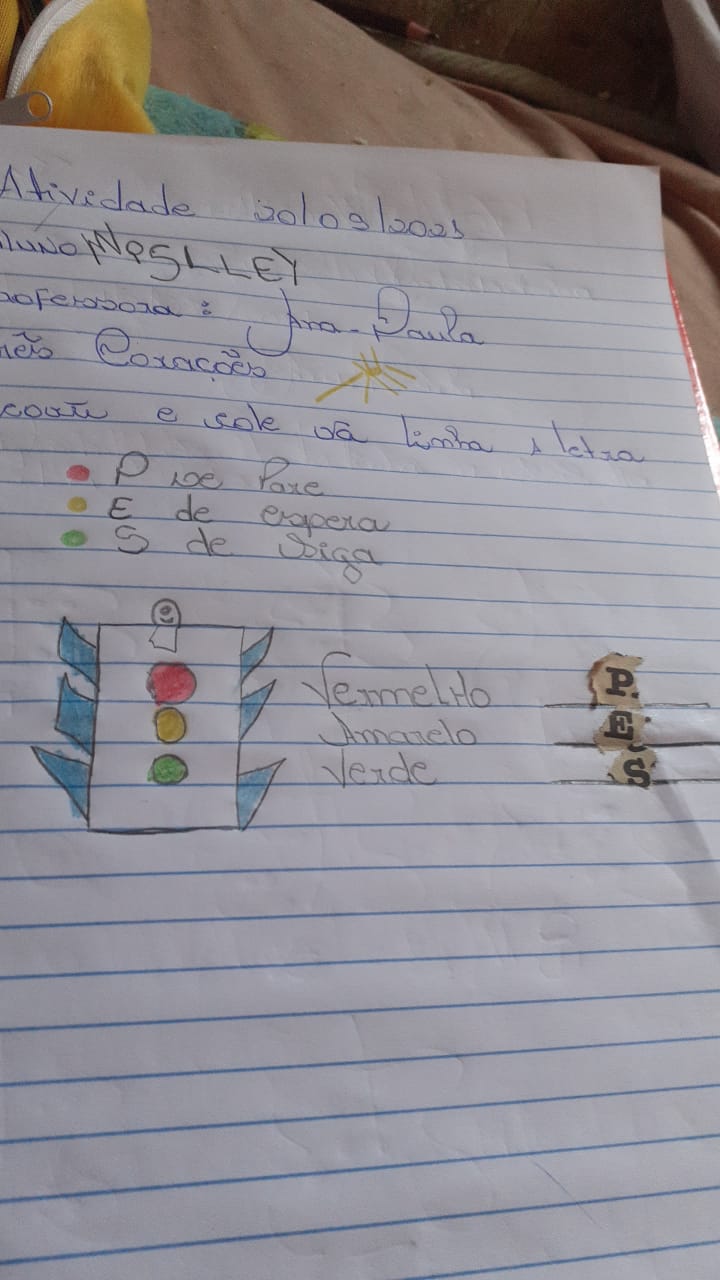 Atividade 20/09/2021
luno WESLLEY
rofessora: Ana-Paula
rês Corações
corte e cole na linha a letra
P de Pare
E de espera
S de Siga
Vermelho P.
Amarelo E
Verde S